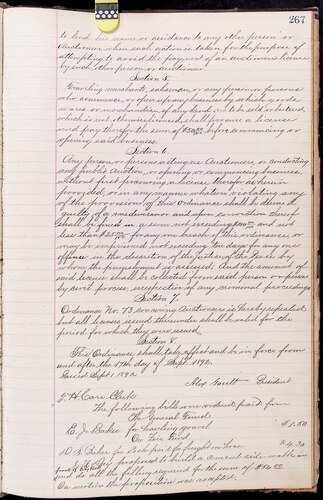 267
to lend his name or assistance to any other person or
Auctioneer when such action is taken for the purpose of
attempting to avoid the payment of an auctioneers license
by such other person or auctioneer.
Section 5.
Traveling merchants, salesmen, or any person or persons
who commence, or open up any business by which goods
wares or merchandise of any kind are to be sold or
which is not otherwise licensed, shall procure a license
and pay therefor the sum of $50.00 before commencing or
opening said business.
Section 6.
Any person or persons acting as Auctioneer, or conducting
any public Auction, or opening or commencing business
without first procuring a license therefor as herein
provided, or in any manner whatever violating any
of the provisions of this Ordinance shall be deemed
guilty of a misdemeanor and upon conviction thereof
shall be fined in a sum not exceeding $100.00 and not
less than $25.00 for any one breach of this ordinance, or
may be imprisoned not exceeding ten days for any one
offense in the discretion of the Justice of the Peace by
whom the punishment is assessed. And the amount of
said license shall be collected from said person or persons
by civil process irrespective of any criminal proceedings
Section 7.
Ordinance No. 73 concerning Auctioneers is hereby repealed
but all licenses issued thereunder shall be valid for the
period for which they were issued.
Section 8.
This Ordinance shall take effect and be in force from
and after the 17th day of Sept. 1892.
Passed Sept 1, 1892
President
J. H. Carr Clerk
The following bills were ordered paid from
The General Fund
E. J. Baker for hauling gravel $1.50
On Fire Fund
Baker for freight on hose $4.20
proposed to build a cement side walk in
and do all the filling required for the sum of $14.00
On motion the proposition was accepted.